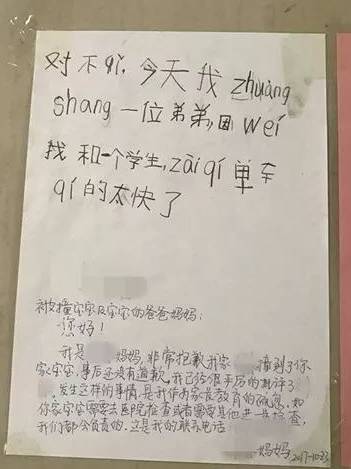 对不qǐ，今天我 zhuàng
shang 一位弟弟，因 wéi
我和一个学生，zài qí 单车
qí 的太快了
被撞宝宝及宝宝的爸爸妈妈：
您好！
我是 妈妈，非常抱歉，我家 撞到了你
家宝宝，事后还没有道歉，我已给很严厉的批评了
，发生这样的事情，是我作为家长教育的疏忽，如
你家宝宝需要去医院检查或者需要其他进一步检查，
我们都会负责的，这是我的联系电话
妈妈 2017-10.23